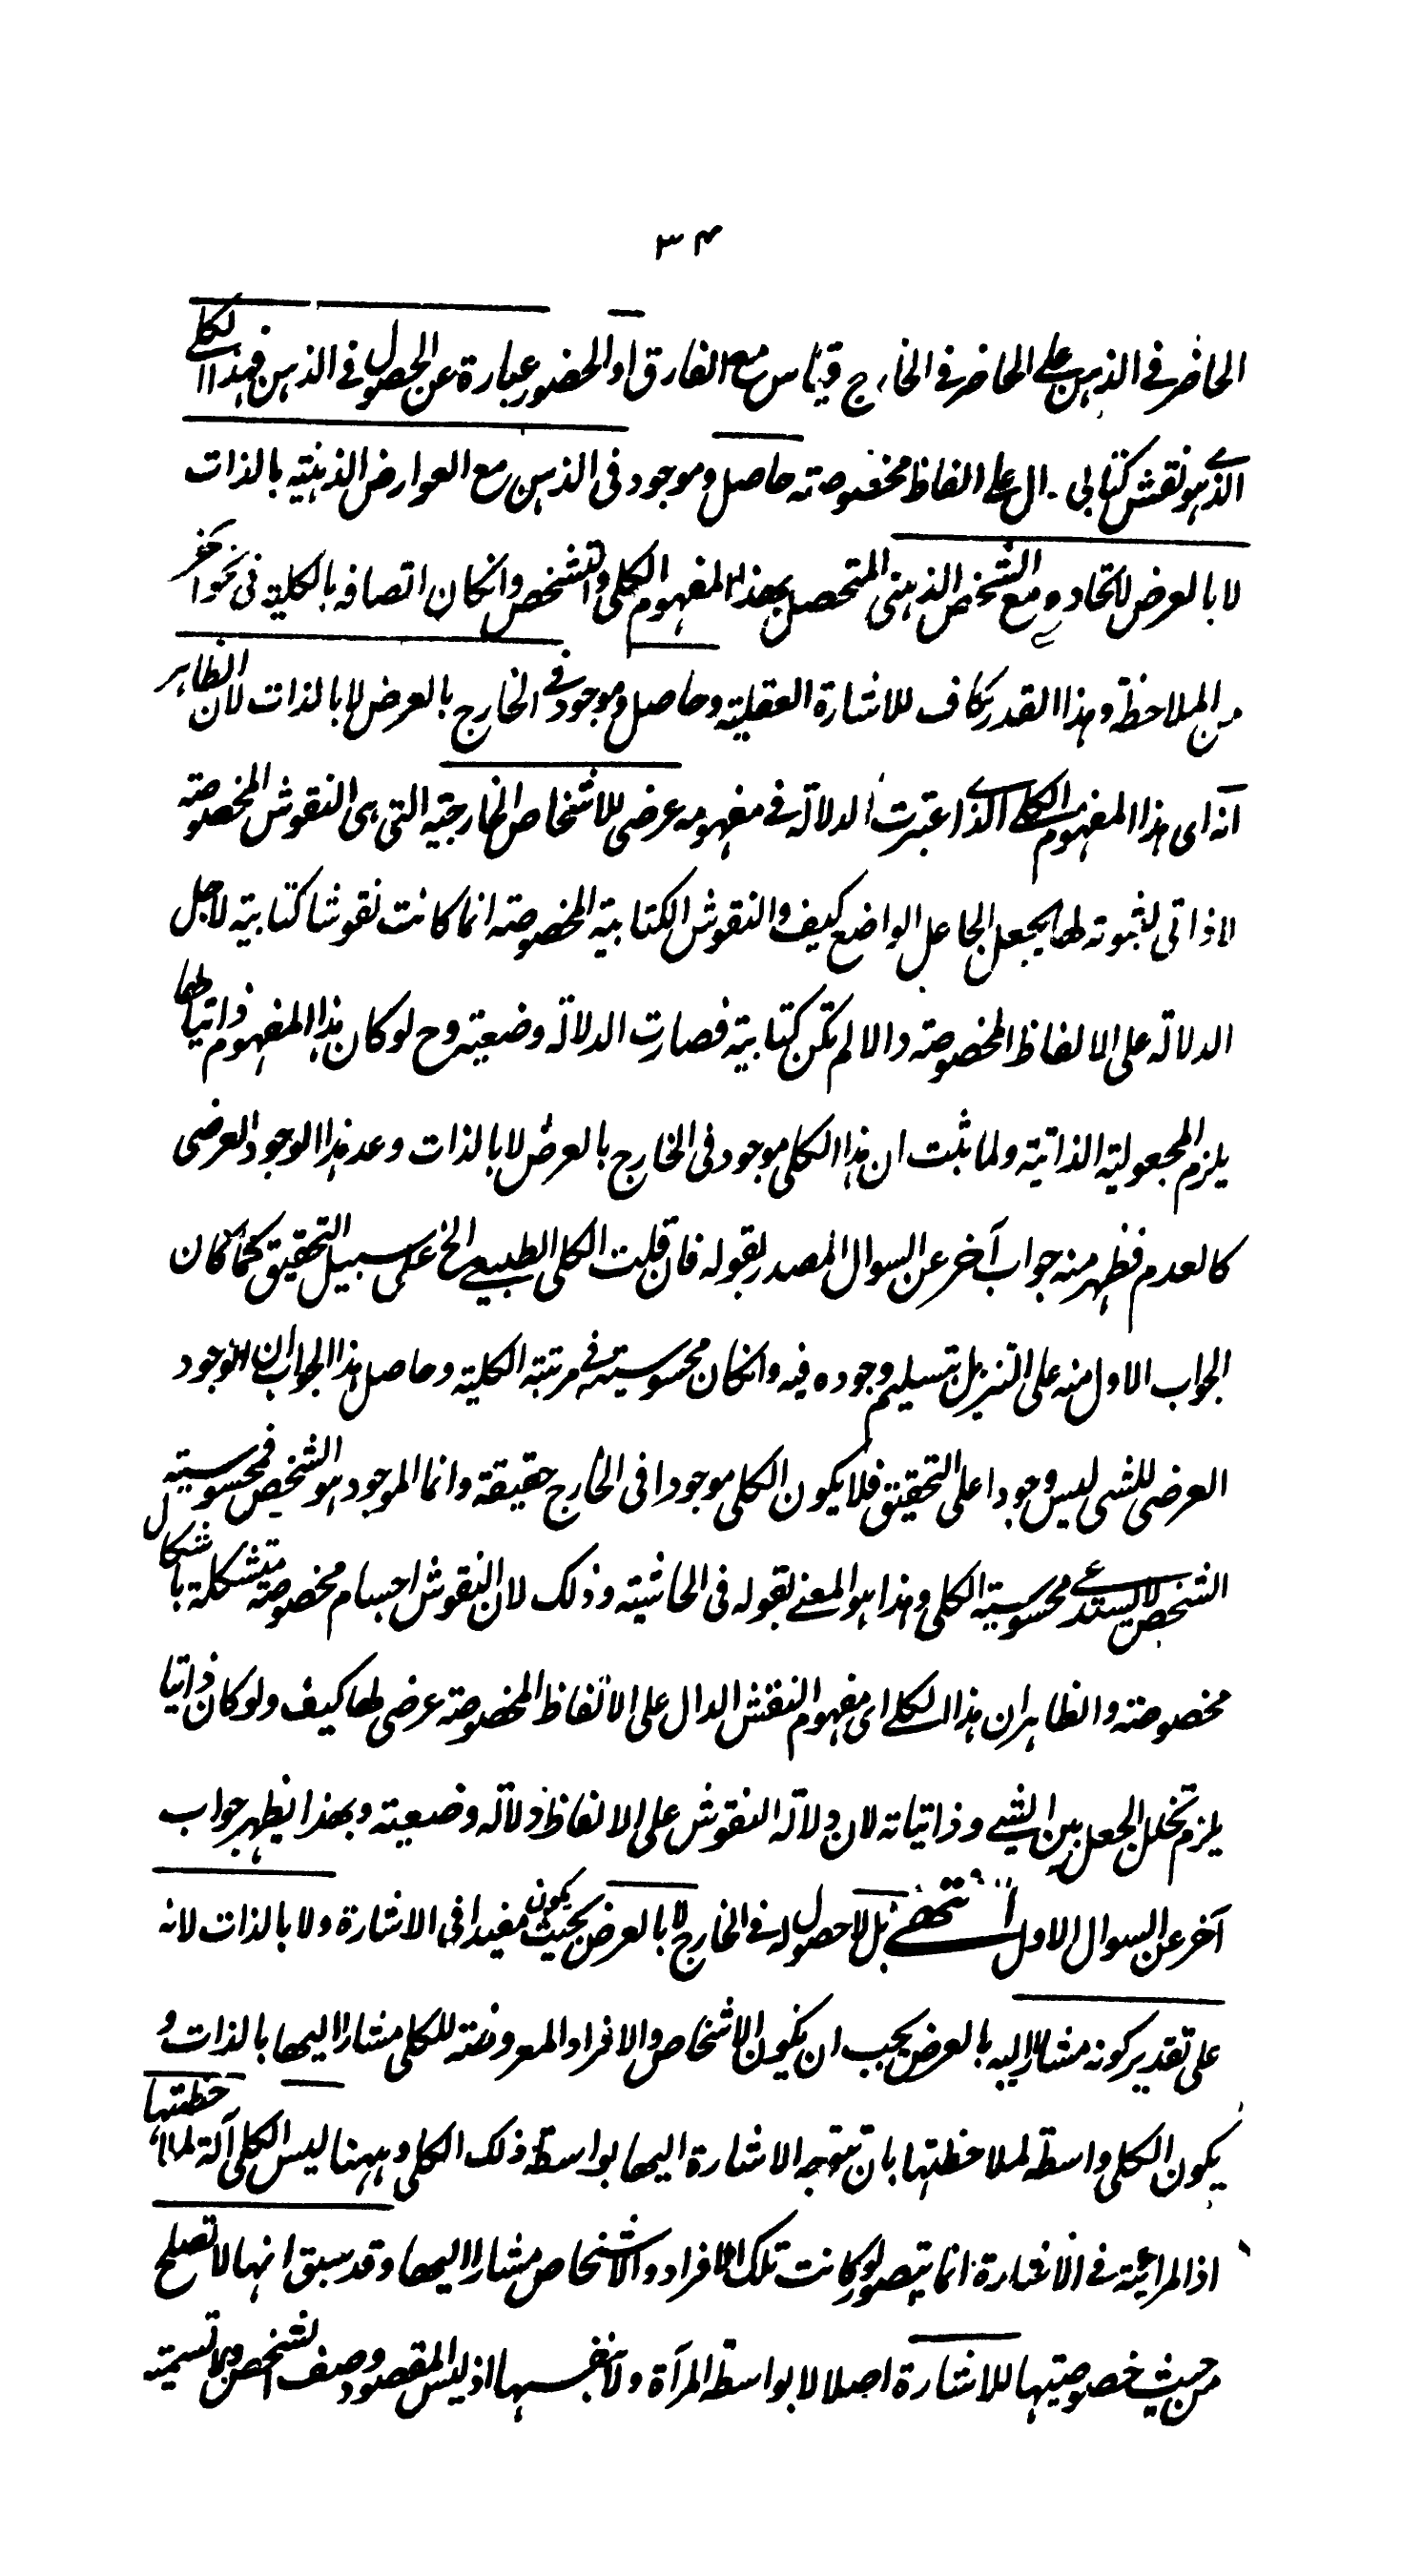 ٣٤
الحاضر في الذهن على الحاضر في الخارج قياس مع الفارق او الحضور عبارة عن الحصول في الذهن فهذا الكلي
الذي هو نقش كتابي دال على الفاظ مخصوصة حاصل وموجود في الذهن مع العوارض الذهنية بالذات
لا بالعرض لاتحاده مع الشخص الذهني المتحصل بهذا المفهوم الكلي والتشخص وانكان اتصافه بالكلية في نحو آخر
من الملاحظة وهذا القدر كاف للاشارة العقلية وحاصل وموجود في الخارج بالعرض لا بالذات لان الظاهر
انه اى هذا المفهوم الكلي الذي اعتبرت الدلالة في مفهومه عرضي للاشخاص الخارجية التي هى النقوش المخصوصة
لا ذاتي لثبوته لها بجعل الجاعل الواضع كيف والنقوش الكتابية المخصوصة انما كانت نقوشا كتابية لاجل
الدلالة على الالفاظ المخصوصة والا لم تكن كتابية فصارت الدلالة وضعية وح لو كان هذا المفهوم ذاتيا لها
يلزم المجعولية الذاتية ولما ثبت ان هذا الكلي موجود في الخارج بالعرض لا بالذات وعد هذا الوجود العرضي
كالعدم فظهر منه جواب آخر عن السوال المصدر بقوله فان قلت الكلي الطبيعي الخ على سبيل التحقيق كما كان
الجواب الاول منه على التنزيل بتسليم وجوده فيه وانكان محسوسيته في مرتبة الكلية وحاصل هذا الجواب ان الوجود
العرضي للشى ليس وجودا على التحقيق فلا يكون الكلي موجودا في الخارج حقيقة وانما الموجود هو الشخص فمحسوسية
الشخص لا يستدعي محسوسية الكلي وهذا هو المعنے بقوله في الحاشية وذلك لان النقوش اجسام مخصوصة متشكلة باشكال
مخصوصة والظاهر ان هذا الكلي اى مفهوم النقش الدال على الالفاظ المخصوصة عرضي لها كيف ولو كان ذاتيا
يلزم تخلل الجعل بين الشئے وذاتياته لان دلالة النقوش على الالفاظ دلالة وضعية وبهذا يظهر جواب
آخر عن السوال الاول انتهے بل لا حصول له في الخارج لا بالعرض بحيث يكون مفيدا في الاشارة ولا بالذات لانه
على تقدير كونه مشارا اليه بالعرض يجب ان يكون الاشخاص والافراد المعروضة للكلي مشارا اليها بالذات و
يكون الكلي واسطة لملاحظتها بان تتوجه الاشارة اليها بواسطة ذلك الكلي وههنا ليس الكلي آلة لملاحظتها
اذ المرائية في الاشارة انما يتصور لو كانت تلك الافراد والاشخاص مشارا اليها وقد سبق انها لا تصلح
من حيث خصوصيتها للاشارة اصلا لا بواسطة المرآة ولا بنفسها اذ ليس المقصود وصف الشخص ولا تسمية